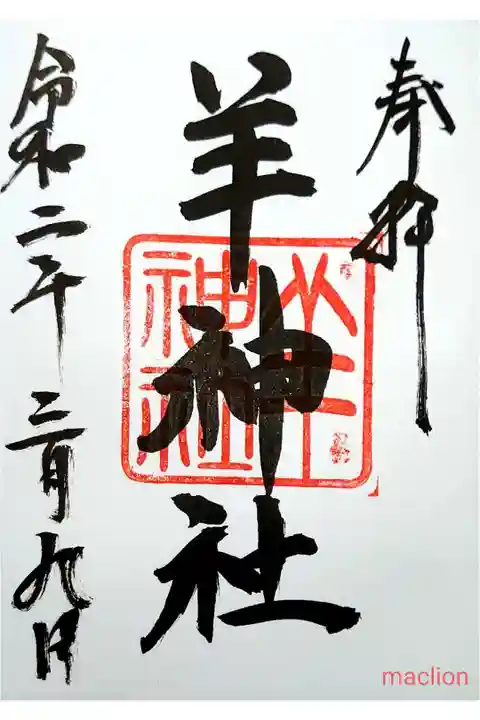 奉拝
羊神社
羊神社
令和二年三月九日
maclion